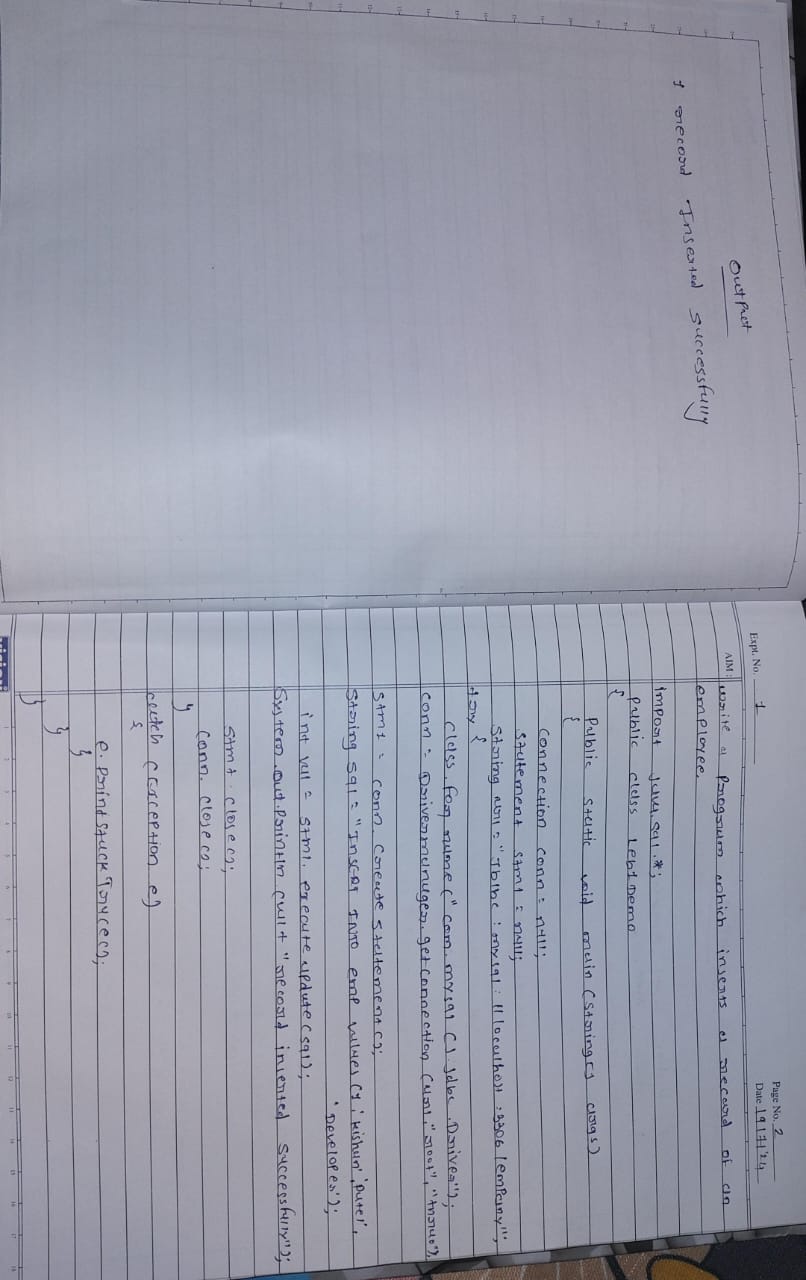 Output
1 record Inserted successfully
Expt. No. 1
Page No. 2
Date 19/7/24
AIM: write a program which inserts a record of an
employee.
import java.sql.*;
Public class Lab1Demo
{
Public static void main (String[] args)
{
Connection conn = null;
Statement stm1 = null;
String url = "Jdbc:mysql://localhost:3306/empany";
try {
Class.for name("com.mysql.cj.jdbc.Driver");
conn = Drivermanager.getconnection (url,"root",
stm1 = conn.create statement();
String sql = "Insert INTO emp values (1,'kishan','patel',
'Developer');
int val = stm1.execute update(sql);
System.out.println (val + "record inserted successfully");
stm1.close();
conn.close();
}
catch (exception e)
{
e.printstack Trace();
}
}
}